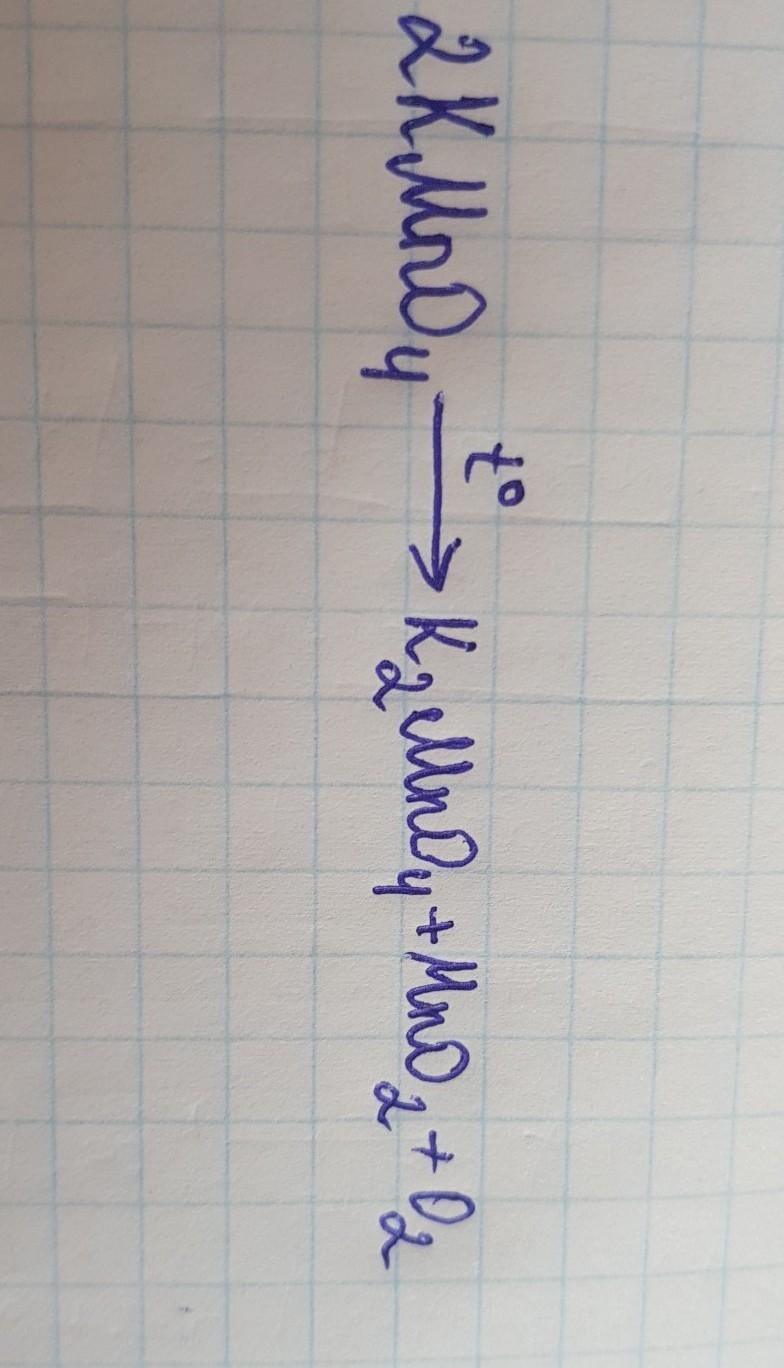 2KMnO₄ —t°→ K₂MnO₄ + MnO₂ + O₂